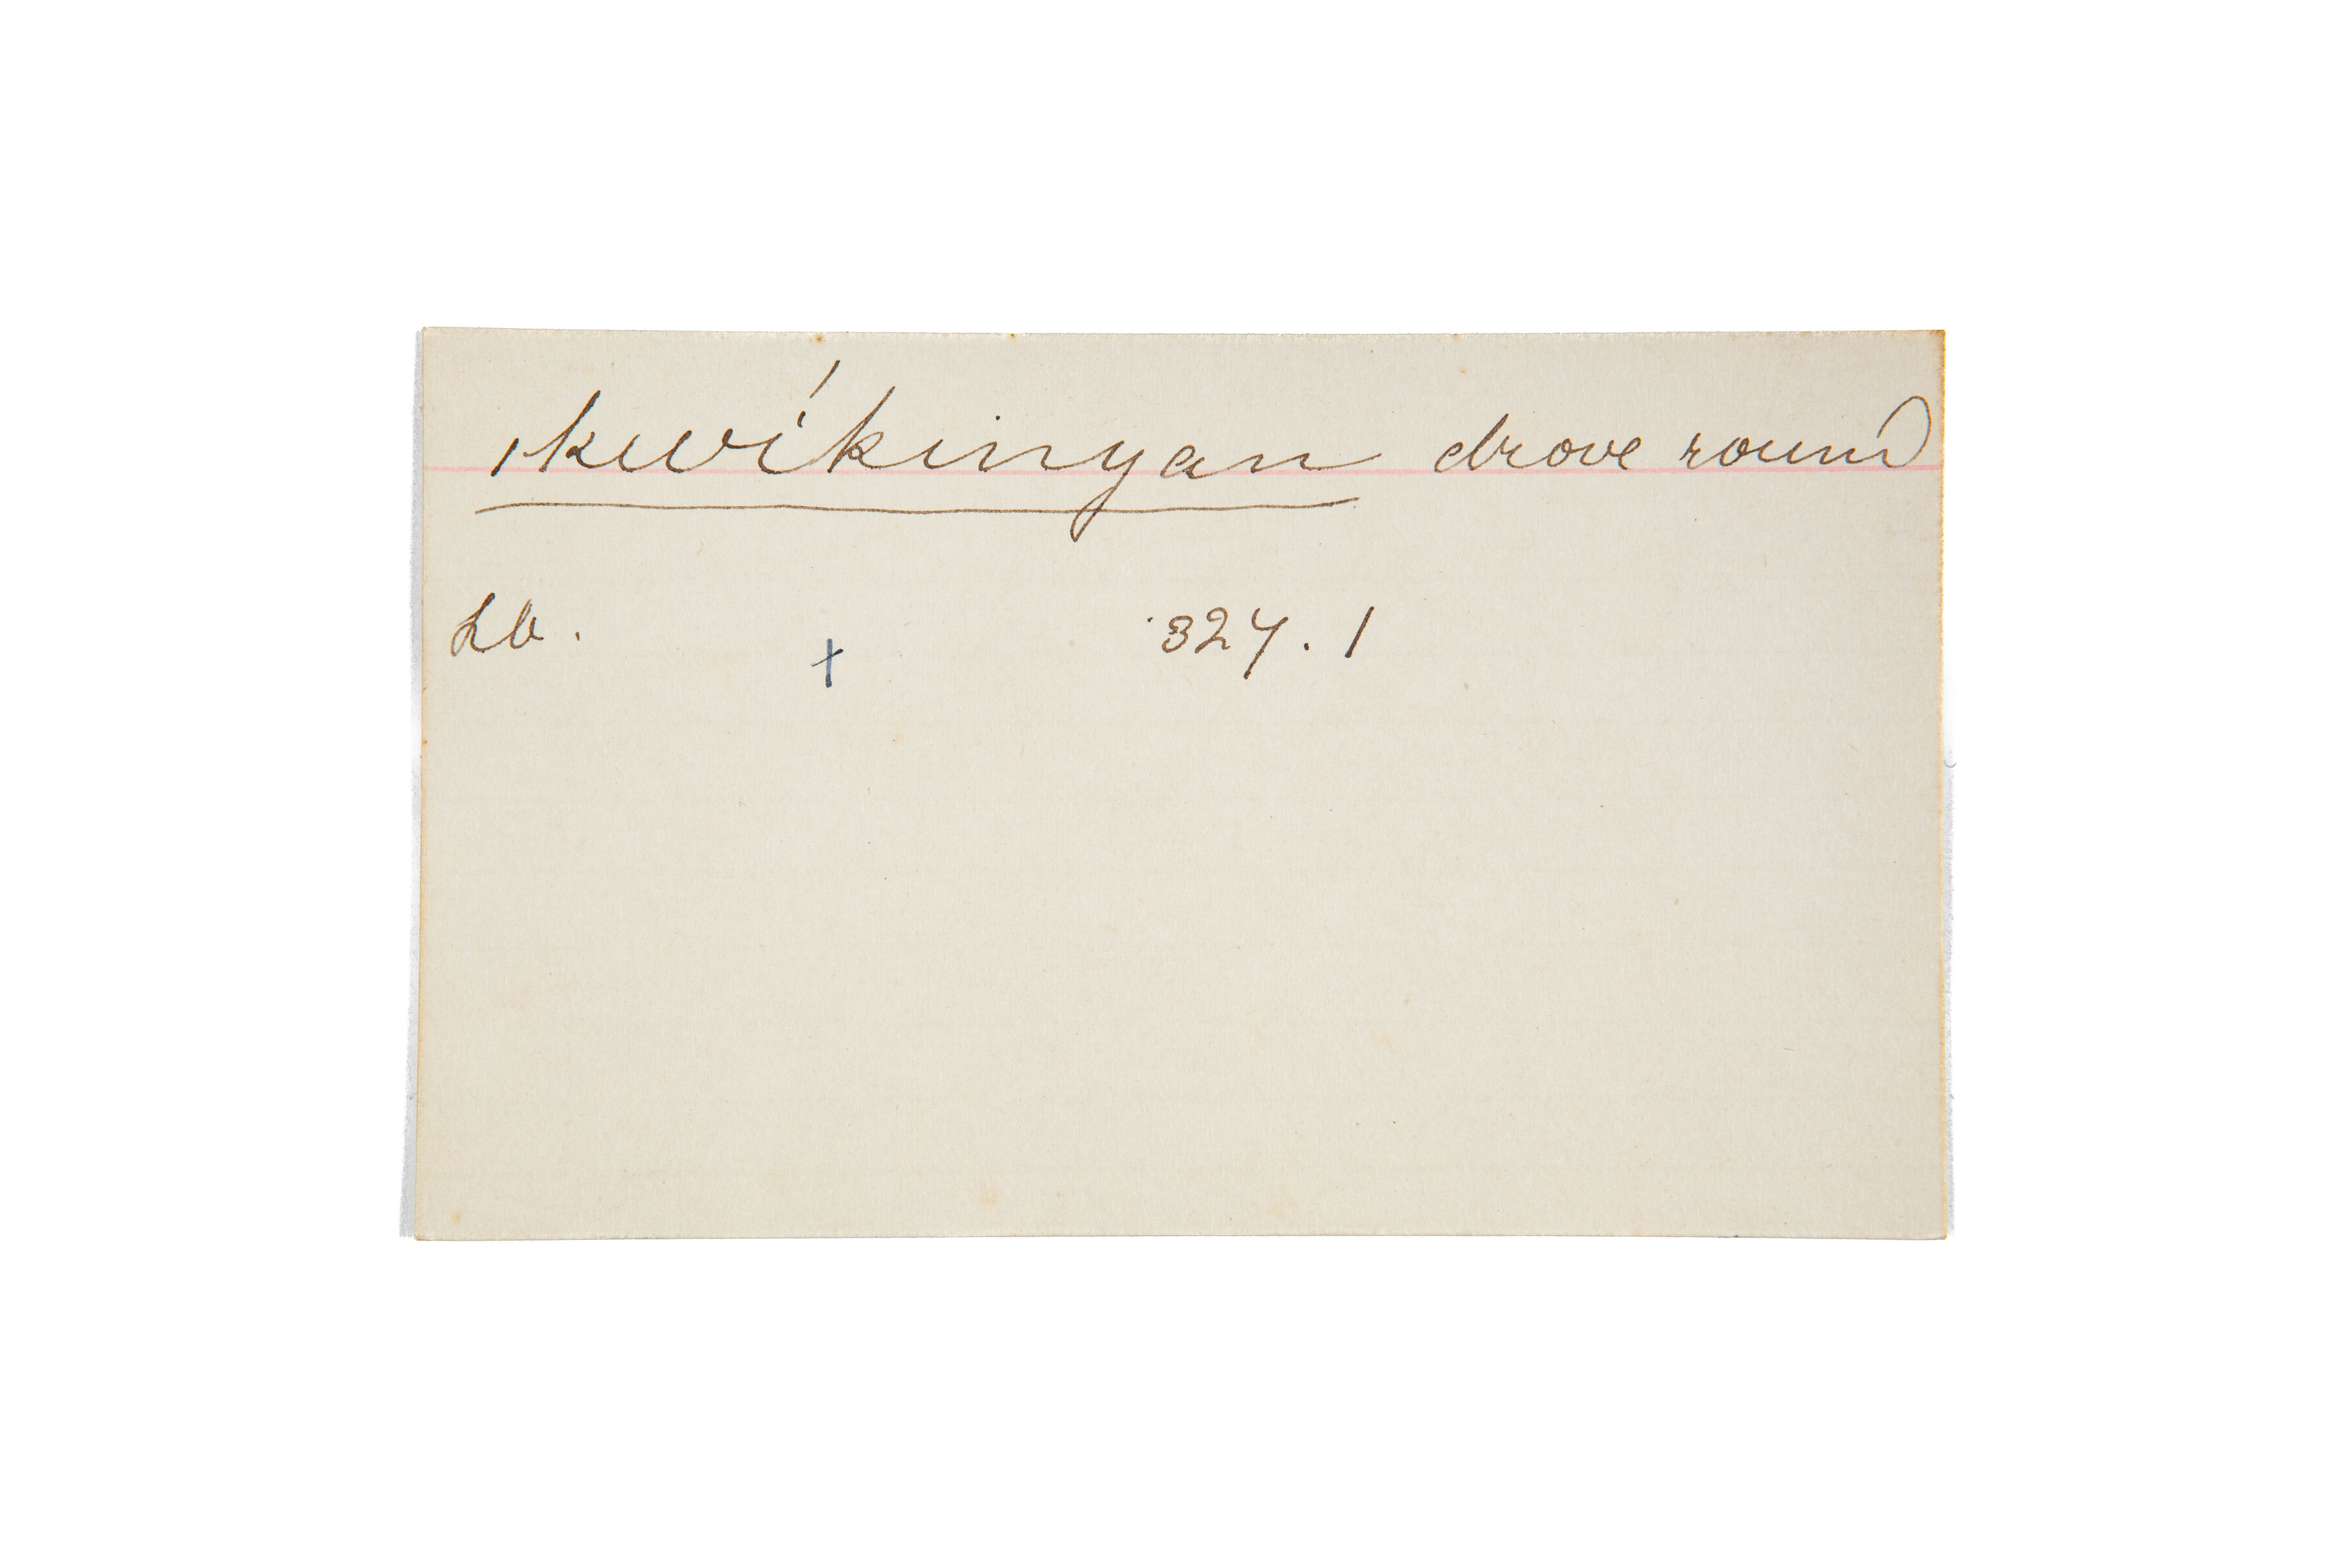 ıkwíkinyan drove round
Lb. + 327.1